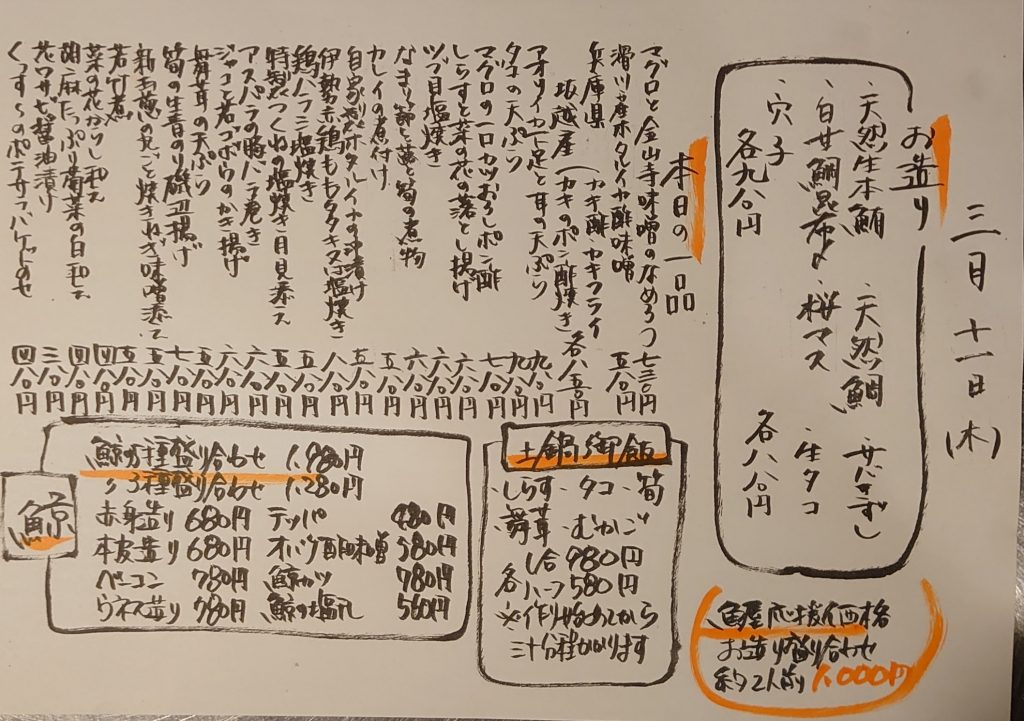 三月十一日(木)
お造り
・天然生本鮪 ・天然鯛 ・サバきずし
・白甘鯛昆布〆 ・桜マス ・生タコ
・穴子 各八八〇円
各九八〇円
本日の一品
マグロと金山寺味噌のなめろう 七三〇円
滑川産ホタルイカ酢味噌 五八〇円
兵庫県 (カキ酢・カキフライ
坂越産 (カキのポン酢焼き) 各八五〇円
アオリイカ下足と耳の天ぷら 九八〇円
タコの天ぷら 九八〇円
マグロの一口カツおろしポン酢 七八〇円
しらすと菜の花の落とし揚げ 六八〇円
ツブ貝塩焼き 六八〇円
なまり節と蕗と筍の煮物 六八〇円
カレイの煮付け 五八〇円
自家製ホタルイカの沖漬け 五八〇円
伊勢赤鶏ももタタキ又は塩焼き 八八〇円
鶏ハラミ塩焼き 五八〇円
特製つくねの塩焼き目見添え 五八〇円
アスパラの豚バラ巻き 六八〇円
ジャコと若ゴボウのかき揚げ 六八〇円
舞茸の天ぷら 五八〇円
筍の生青のり磯辺揚げ 七八〇円
新玉葱の丸ごと焼きねぎ味噌添え 五八〇円
若竹煮 五八〇円
菜の花からし和え 四八〇円
胡麻たっぷり菊菜の白和え 四八〇円
花ワサビ醤油漬け 三八〇円
くっすーのポテサラバケットのせ 四八〇円
土鍋御飯
・しらす ・タコ ・筍
・舞茸 ・むかご
各 一合 980円
ハーフ 580円
※作り始めてから
三十分程かかります
鯨
鯨5種盛り合わせ 1,980円
〃3種盛り合わせ 1,280円
赤身造り 680円 テッパ 480円
本皮造り 680円 オバケ酢味噌 580円
ベーコン 780円 鯨カツ 780円
ウネス造り 780円 鯨の塩タレ 560円
魚屋応援価格
お造り盛り合わせ
約2人前 1,000円